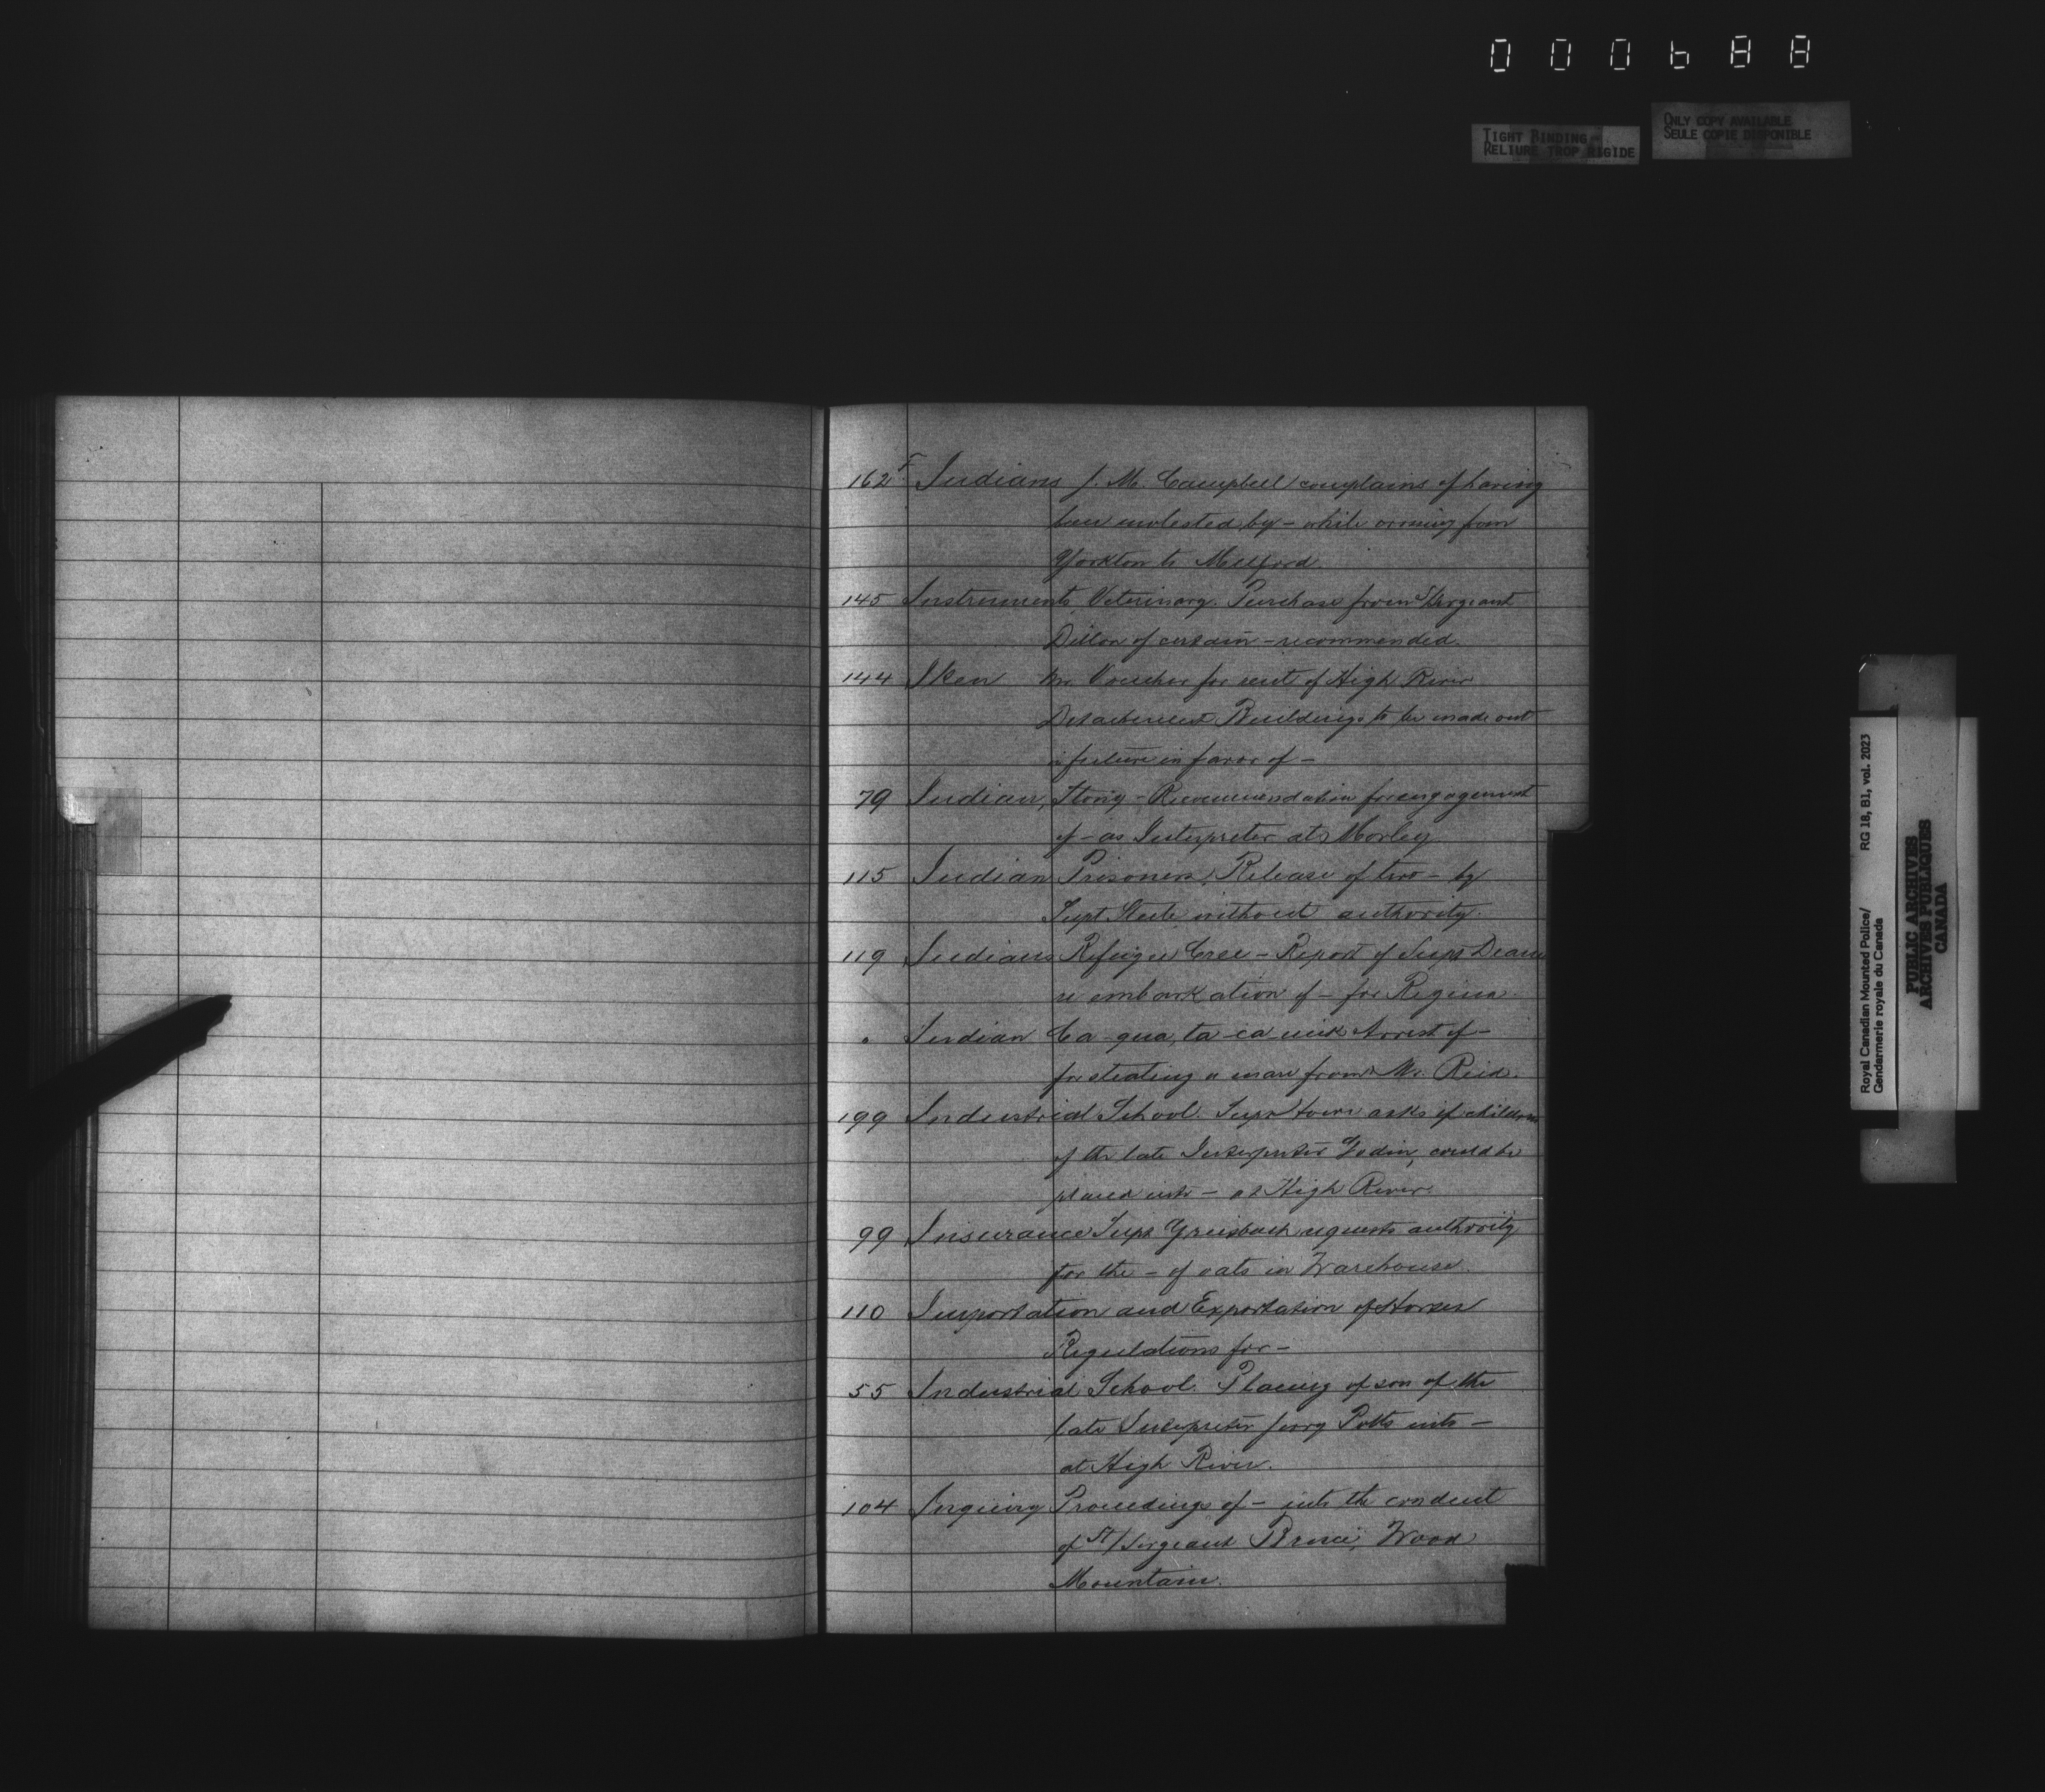 000688
TIGHT BINDING
RELIURE TROP RIGIDE
ONLY COPY AVAILABLE
SEULE COPIE DISPONIBLE
162 F Indians J. M. Campbell complains of having
been molested by - while coming from
Yorkton to Melford.
145 Instruments, Veterinary. Purchase from S/Sergeant
Dillon of certain - recommended.
144 Iken Mr. Voucher for rent of High River
Detachment Buildings to be made out
in future in favor of -
79 Indian, Stony - Recommendation for engagement
of - as Interpreter at Morley
115 Indian Prisoners, Release of two - by
Supt. Steele without authority.
119 Indians Refugee Cree - Report of Supt Deane
re embarkation of - for Regina.
" Indian Ca-qua-ta-ca- Arrest of -
for stealing a mare from Mr. Reid.
199 Industrial School. Supt Howe asks if children
of the late Interpreter Godin, could be
placed into - at High River.
99 Insurance Supt Griesbach requests authority
for the - of oats in Warehouse.
110 Importation and Exportation of Horses
Regulations for -
55 Industrial School. Placing of son of the
late Interpreter Jerry Potts into -
at High River.
104 Inquiry Proceedings of - into the conduct
of St/Sergeant Brice, Wood
Mountain.
Royal Canadian Mounted Police/ RG 18, B1, vol. 2023
Gendarmerie royale du Canada
PUBLIC ARCHIVES
ARCHIVES PUBLIQUES
CANADA